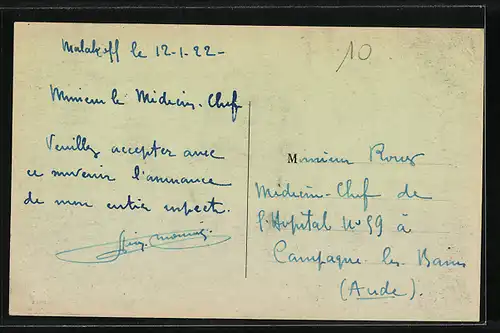 Malakoff le 12-1-22-
10
Monsieur le Médecin-Chef
Veuillez accepter avec
ce souvenir l'assurance
de mon entier respect.
Monsieur Roux
Médecin-Chef de
l'Hopital No 59 à
Campagne-les-Bains
(Aude).